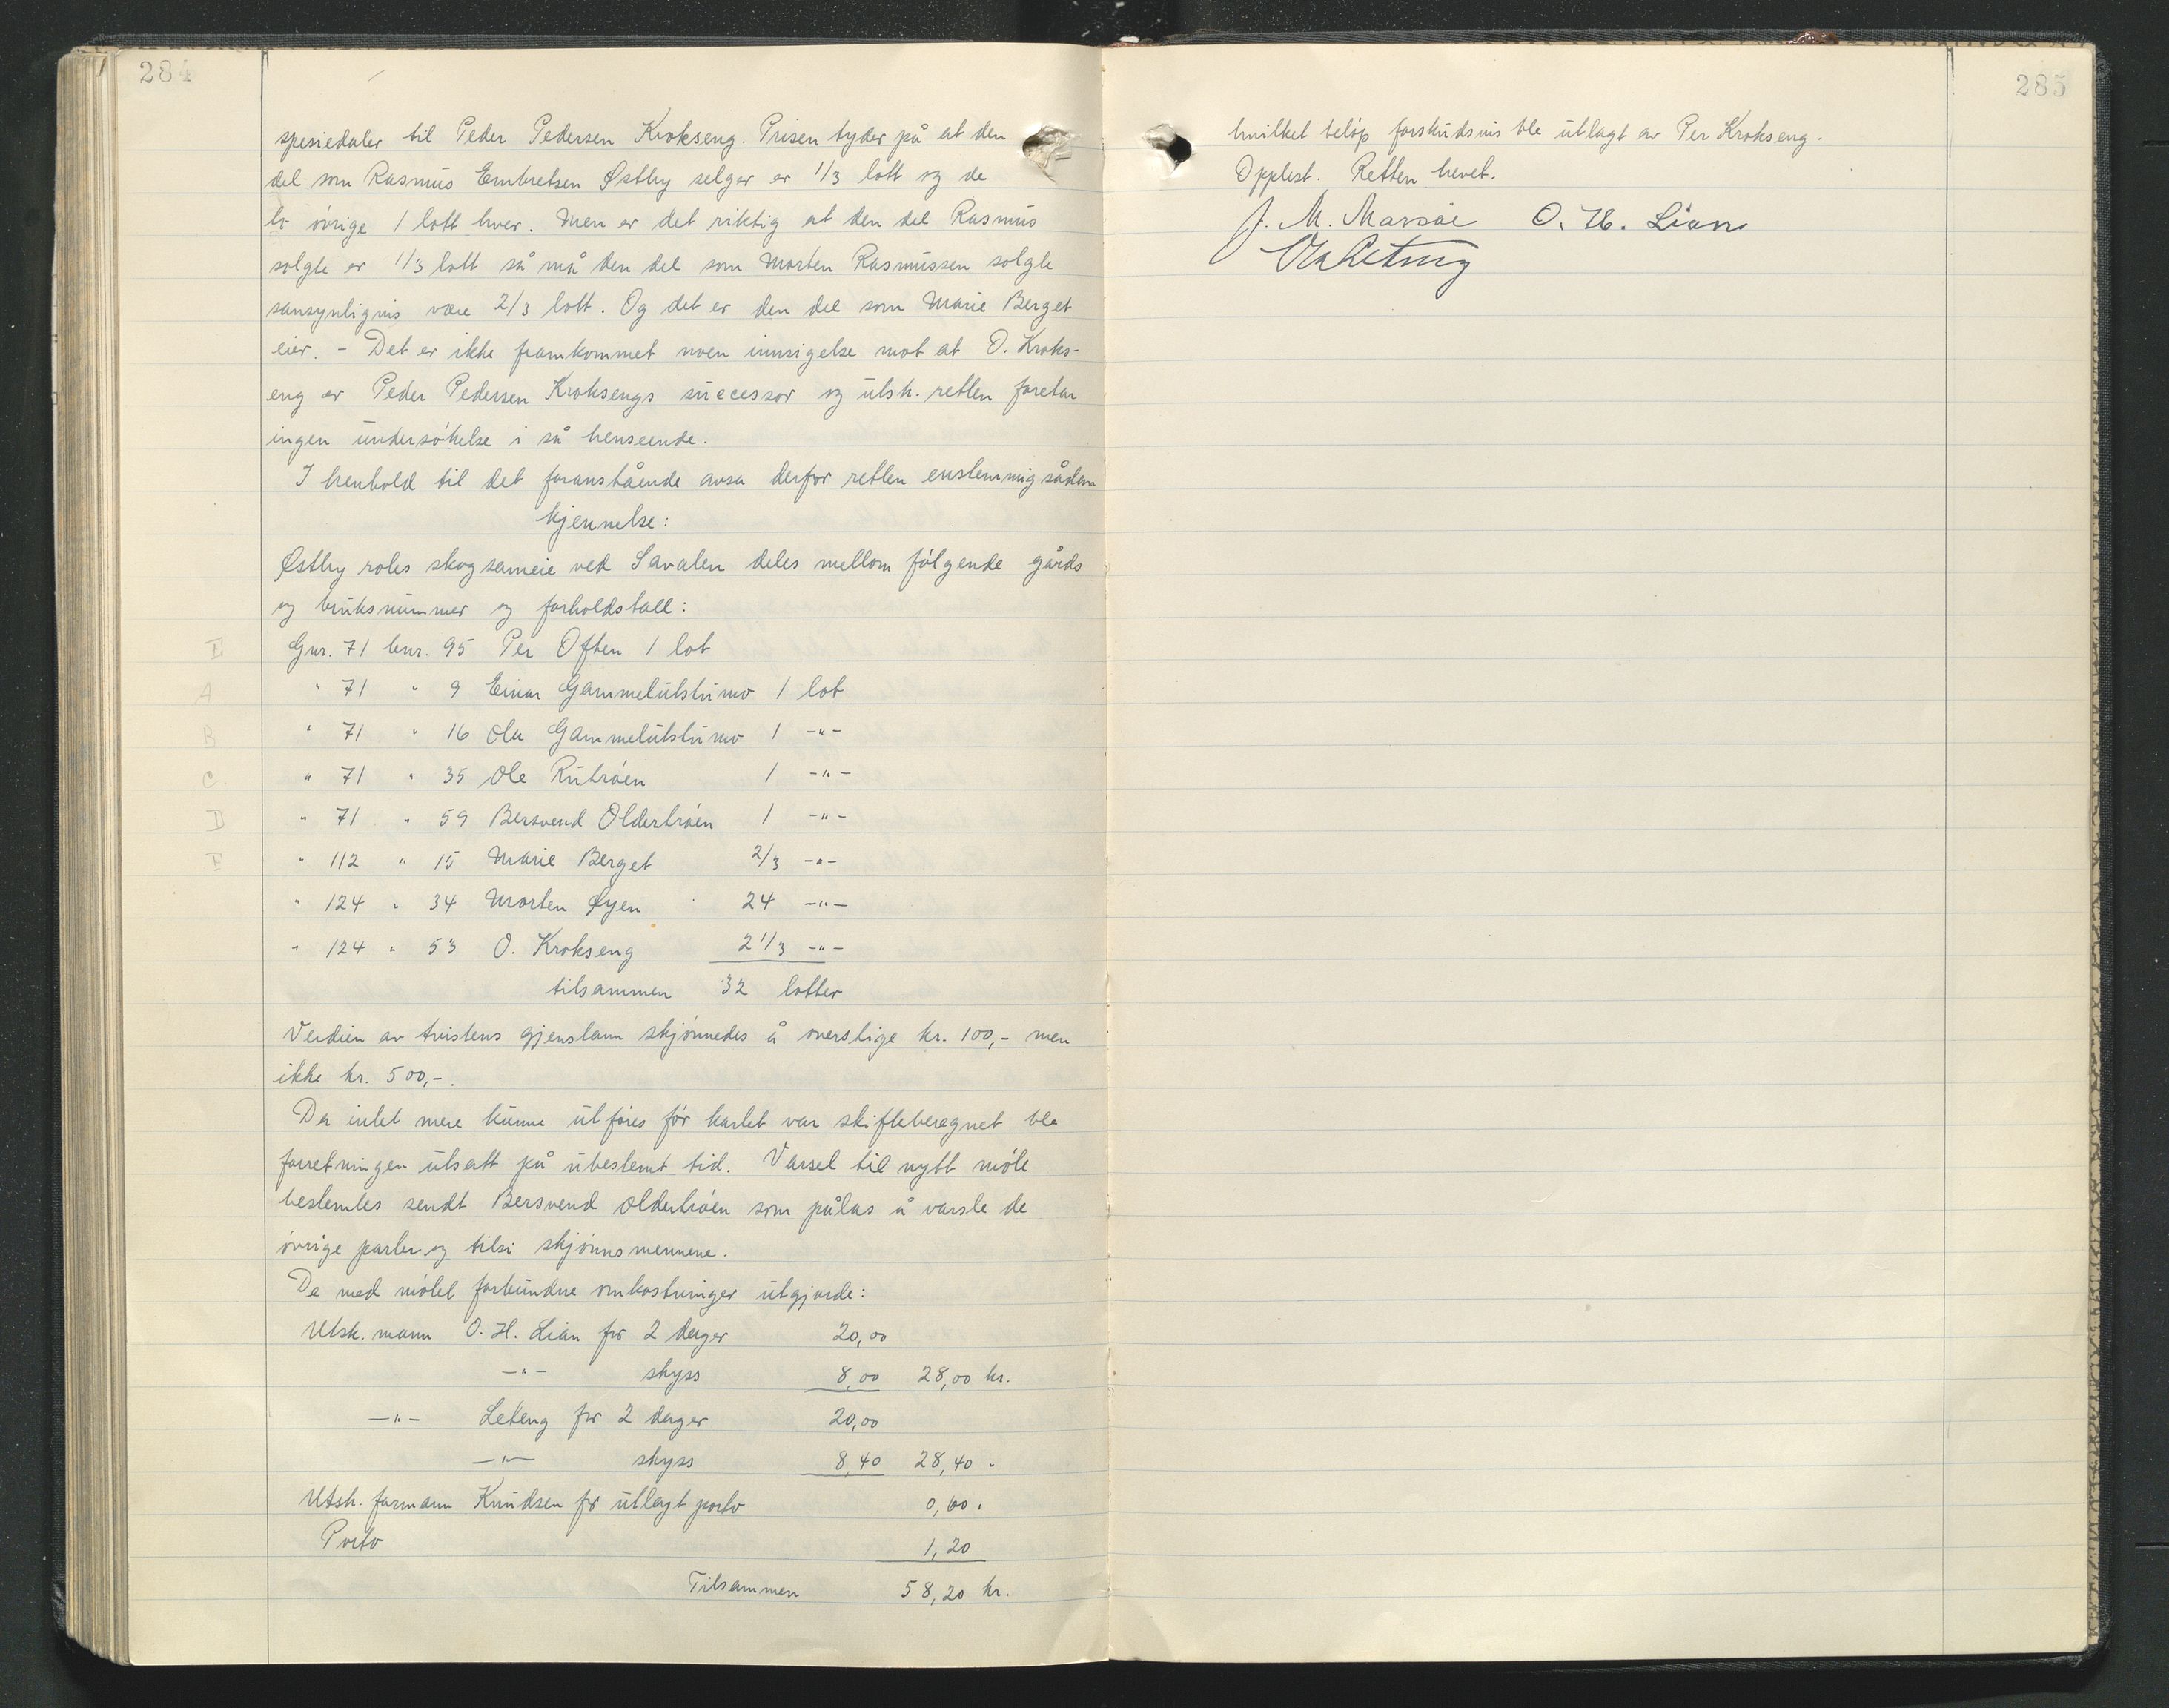 284
spesiedaler til Peder Pedersen Krokseng. Prisen tyder på at den
del som Rasmus Embretsen Østby selger er 1/3 lott og de
to øvrige 1 lott hver. Men er det riktig at den del Rasmus
solgte er 1/3 lott så må den del som Morten Rasmussen solgte
sansynligvis være 2/3 lott. Og det er den del som Marie Berget
eier. - Det er ikke framkommet noen innsigelse mot at O. Kroks-
eng er Peder Pedersen Kroksengs successor og utsk. retten foretar
ingen undersøkelse i så henseende.
I henhold til det foranstående avsa derfor retten enstemmig sådan
kjennelse:
Østby rotes skogsameie ved Savalen deles mellom følgende gårds
og bruksnummer og forholdstall:
E Gnr. 71 bnr. 95 Per Often 1 lot
A " 71 " 9 Einar Gammelutstumo 1 lot
B " 71 " 16 Ola Gammelutstumo 1 -"-
C " 71 " 35 Ole Rutrøen 1 -"-
D " 71 " 59 Bersvend Oldertrøen 1 -"-
F " 112 " 15 Marie Berget 2/3 -"-
" 124 " 34 Morten Øyen 24 -"-
" 124 " 53 O. Krokseng 2 1/3 -"-
tilsammen 32 lotter
Verdien av tvistens gjenstann skjønnedes å overstige kr. 100,- men
ikke kr. 500,-.
Da intet mere kunne utføres før kartet var skifteberegnet ble
forretningen utsatt på ubestemt tid. Varsel til nytt møte
bestemtes sendt Bersvend Oldertrøen som pålas å varsle de
øvrige parter og tilsi skjønnsmennene.
De med møtet forbundne omkostninger utgjorde:
Utsk. mann O. H. Lian for 2 dager 20,00
-"- skyss 8,00 28,00 kr.
-"- Leteng for 2 dager 20,00
-"- skyss 8,40 28,40 "
Utsk. formann Knudsen for utlagt porto 0,60 "
Porto 1,20
Tilsammen 58,20 kr.
285
hvilket beløp forskudsvis ble utlagt av Per Krokseng.
Opplest. Retten hevet.
J. M. O. H. Lian